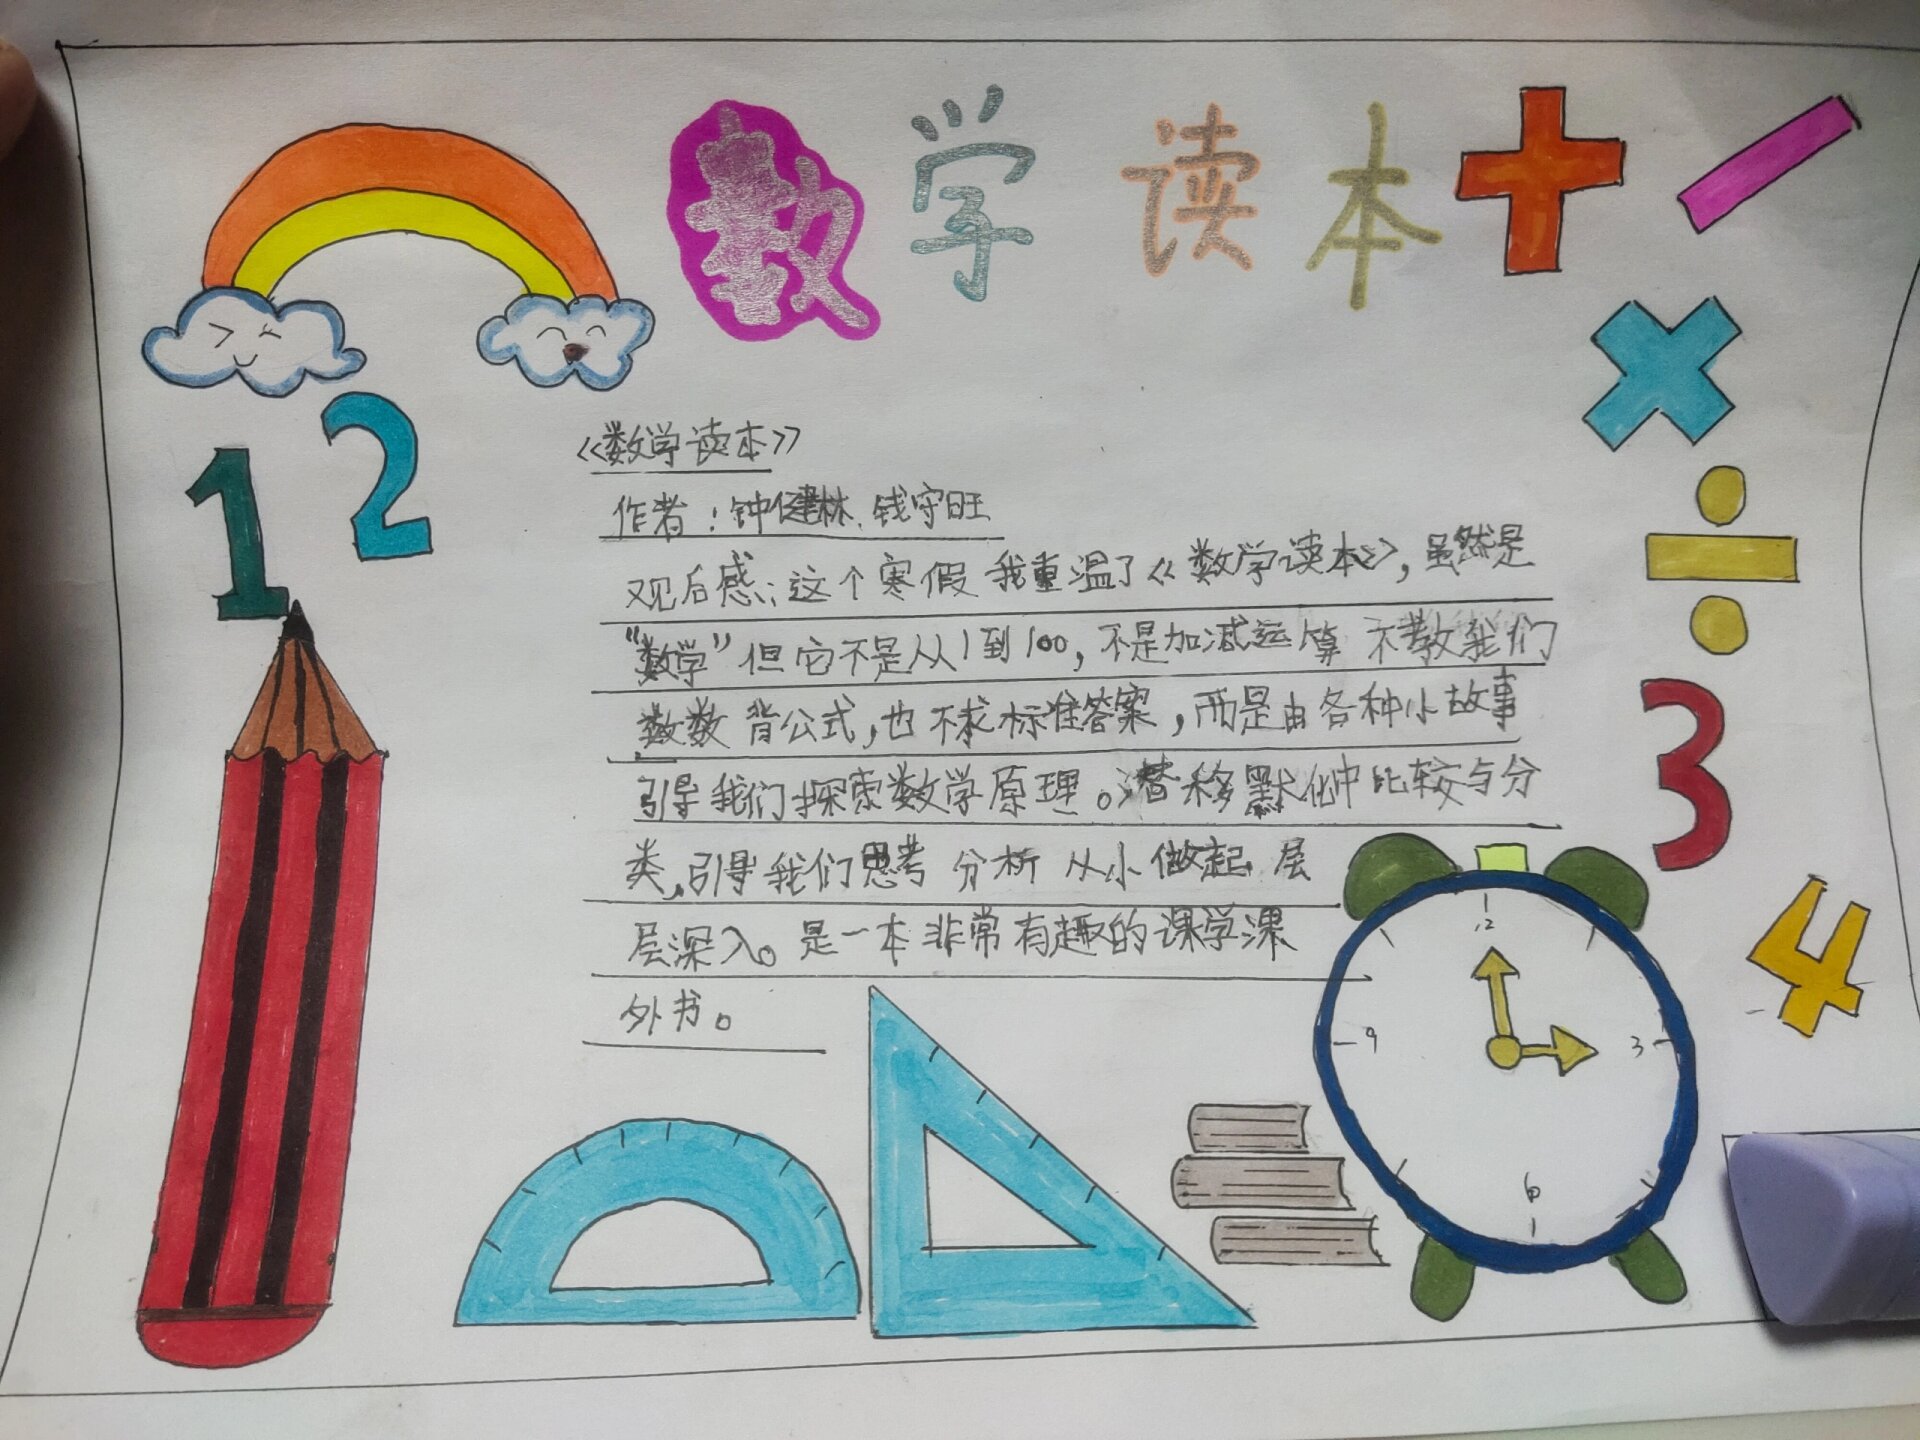 数学读本
+
×
÷
1
2
《数学读本》
作者：钟健林、钱守旺
观后感：这个寒假我重温了《数学读本》，虽然是
“数学”但它不是从1到100，不是加减运算 不教我们
数数 背公式，也不求标准答案，而是由各种小故事
引导我们探索数学原理。潜移默化中比较与分
类，引导我们思考 分析 从小做起 层
层深入。是一本非常有趣的课学课
外书。
3
4
12
9
3
6